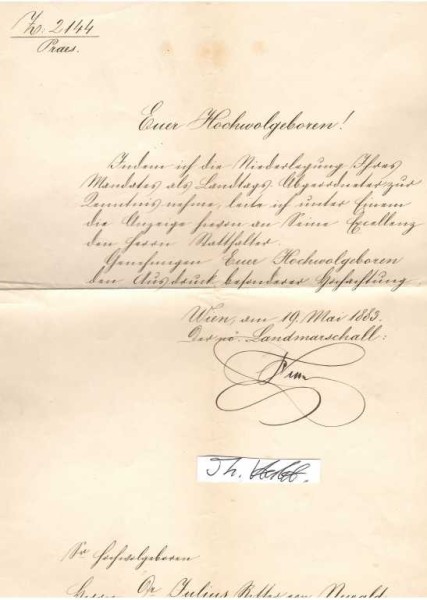 Z: 2144
Praes.
Euer Hochwolgeboren!
Indem ich die Niederlegung Ihres
Mandates als Landtags Abgeordneter zur
Kenntnis nehme, leite ich unter Einem
die Anzeige hievon an Seine Excellenz
den Herrn Statthalter.
Genehmigen Euer Hochwolgeboren
den Ausdruck besonderer Hochachtung.
Wien, am 19. Mai 1883.
Der nö. Landmarschall:
Th.
Sr Hochwolgeboren
Herrn Dr Julius Ritter von Newald